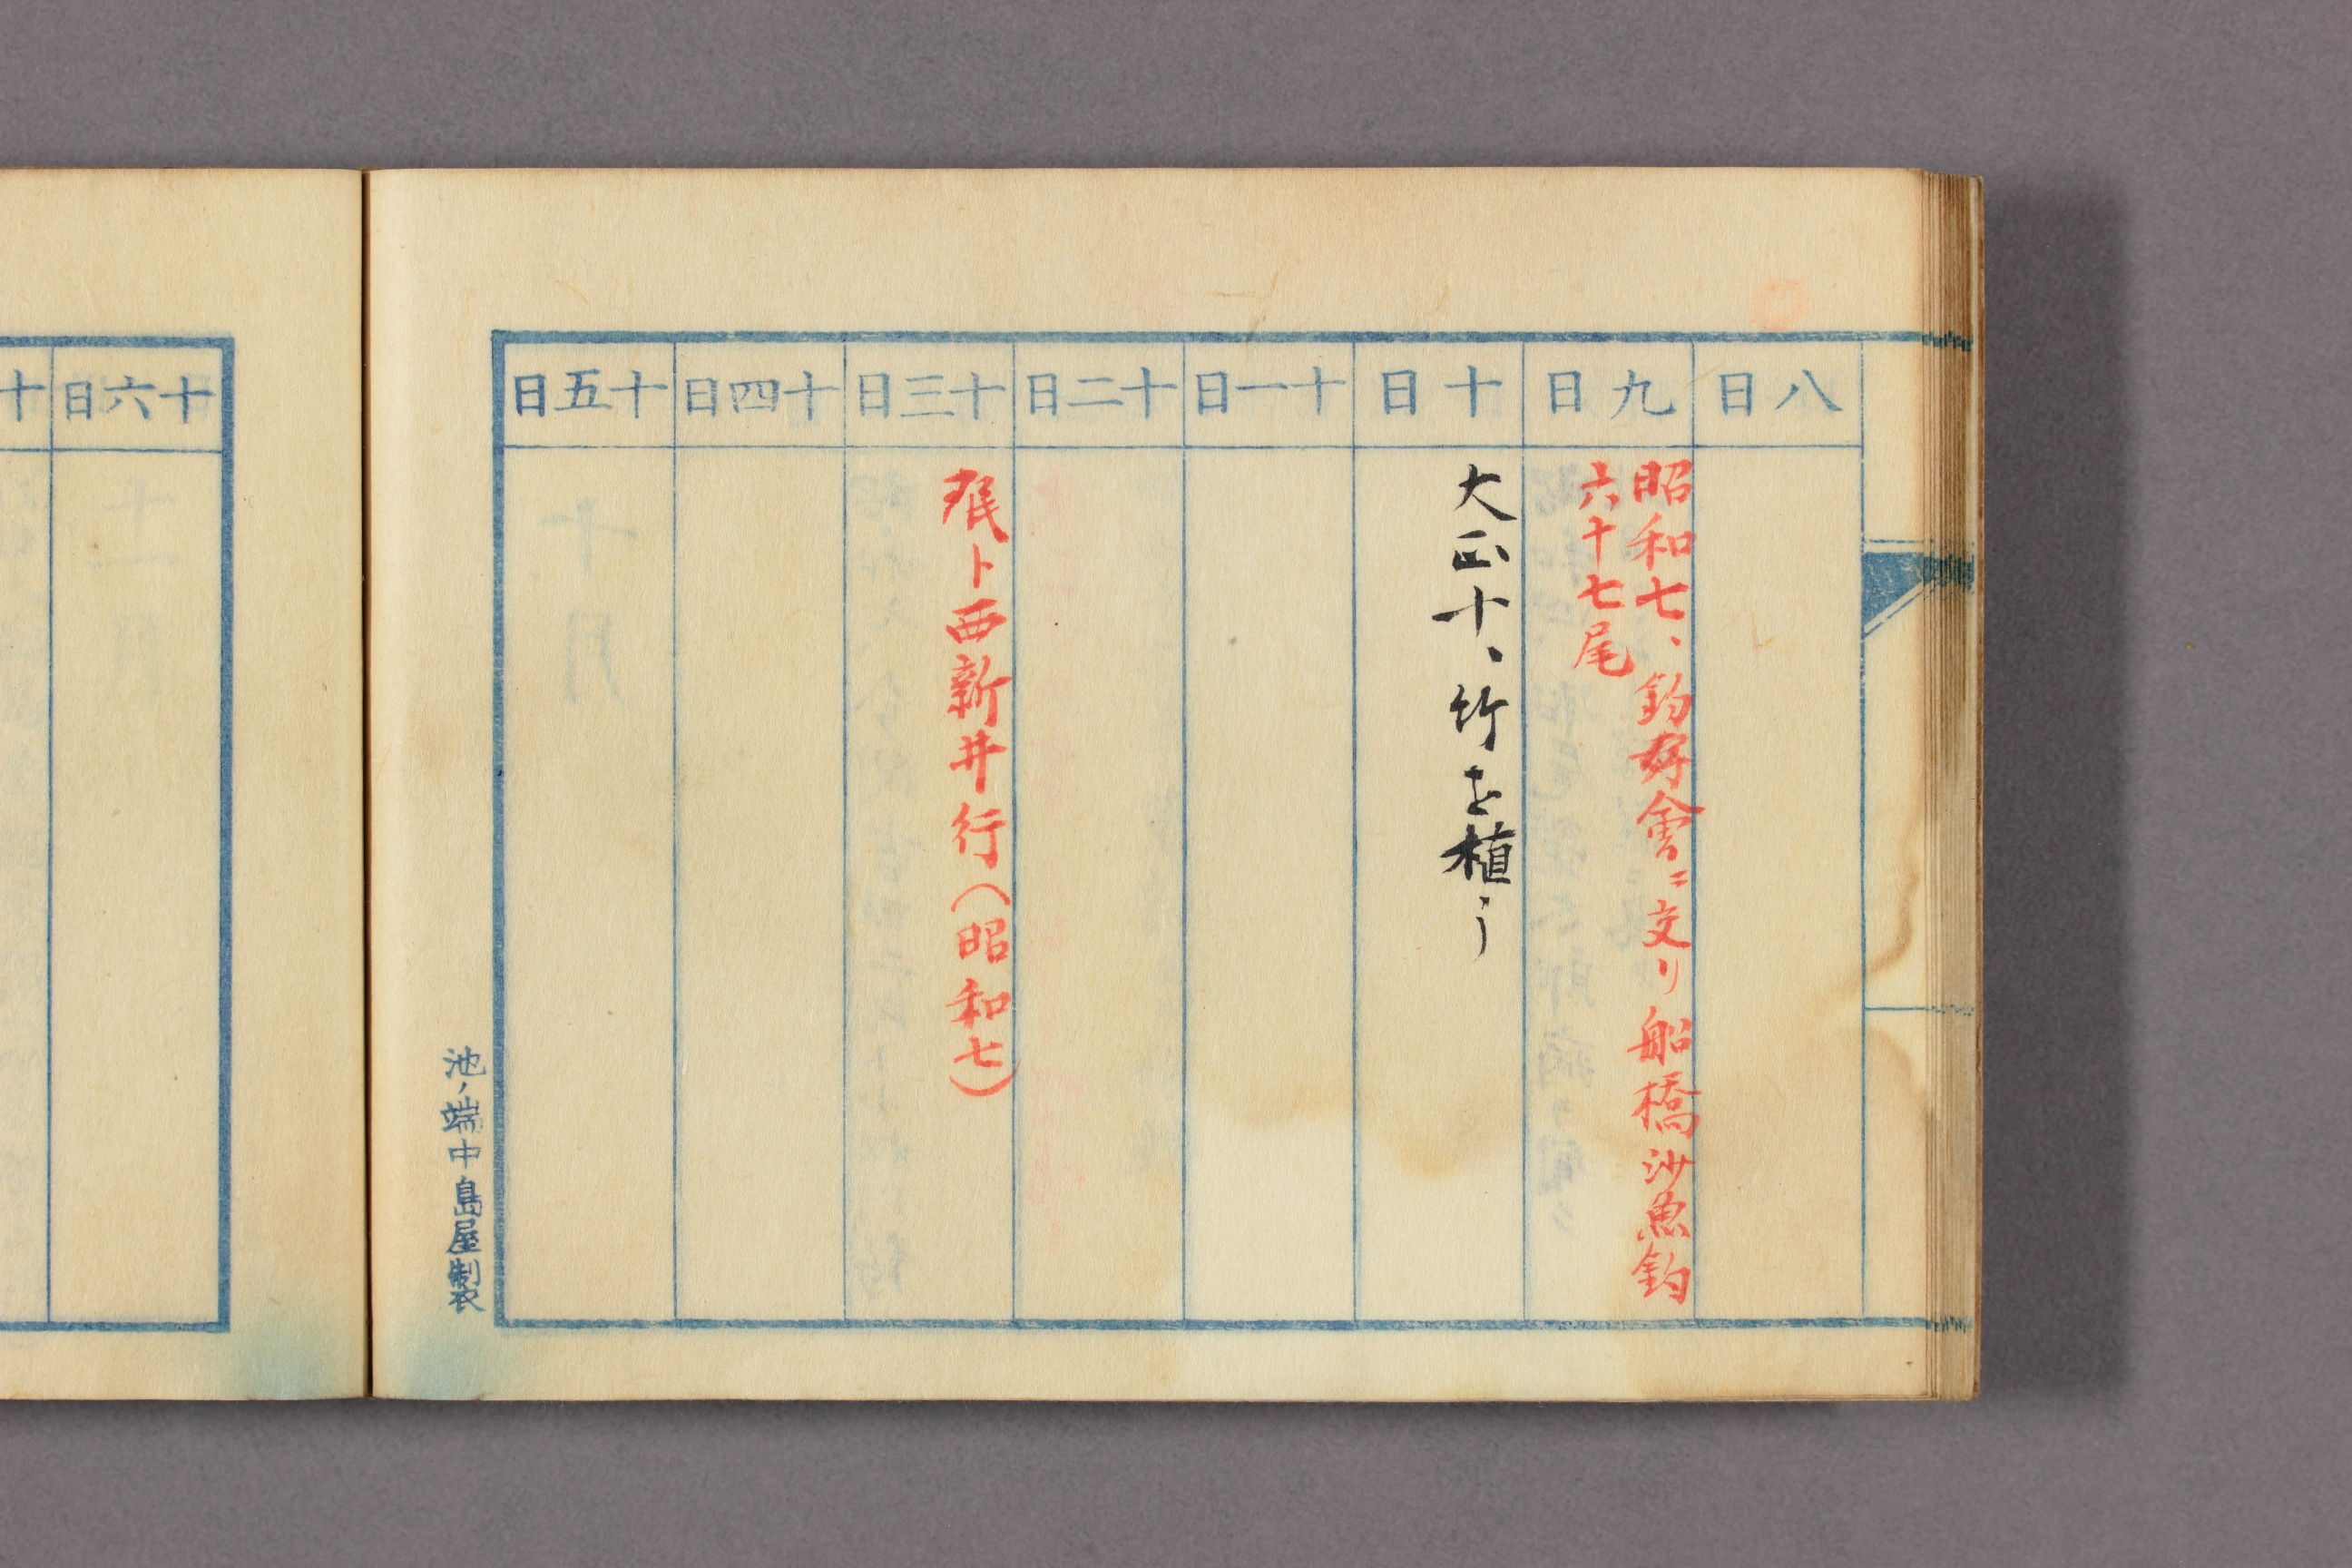 八日
九日
昭和七、釣好會ニ交リ船橋沙魚釣
六十七尾
十日
大正十、竹を植う
十一日
十二日
十三日
ト西新井行(昭和七)
十四日
十五日
池ノ端中島屋製
十六日